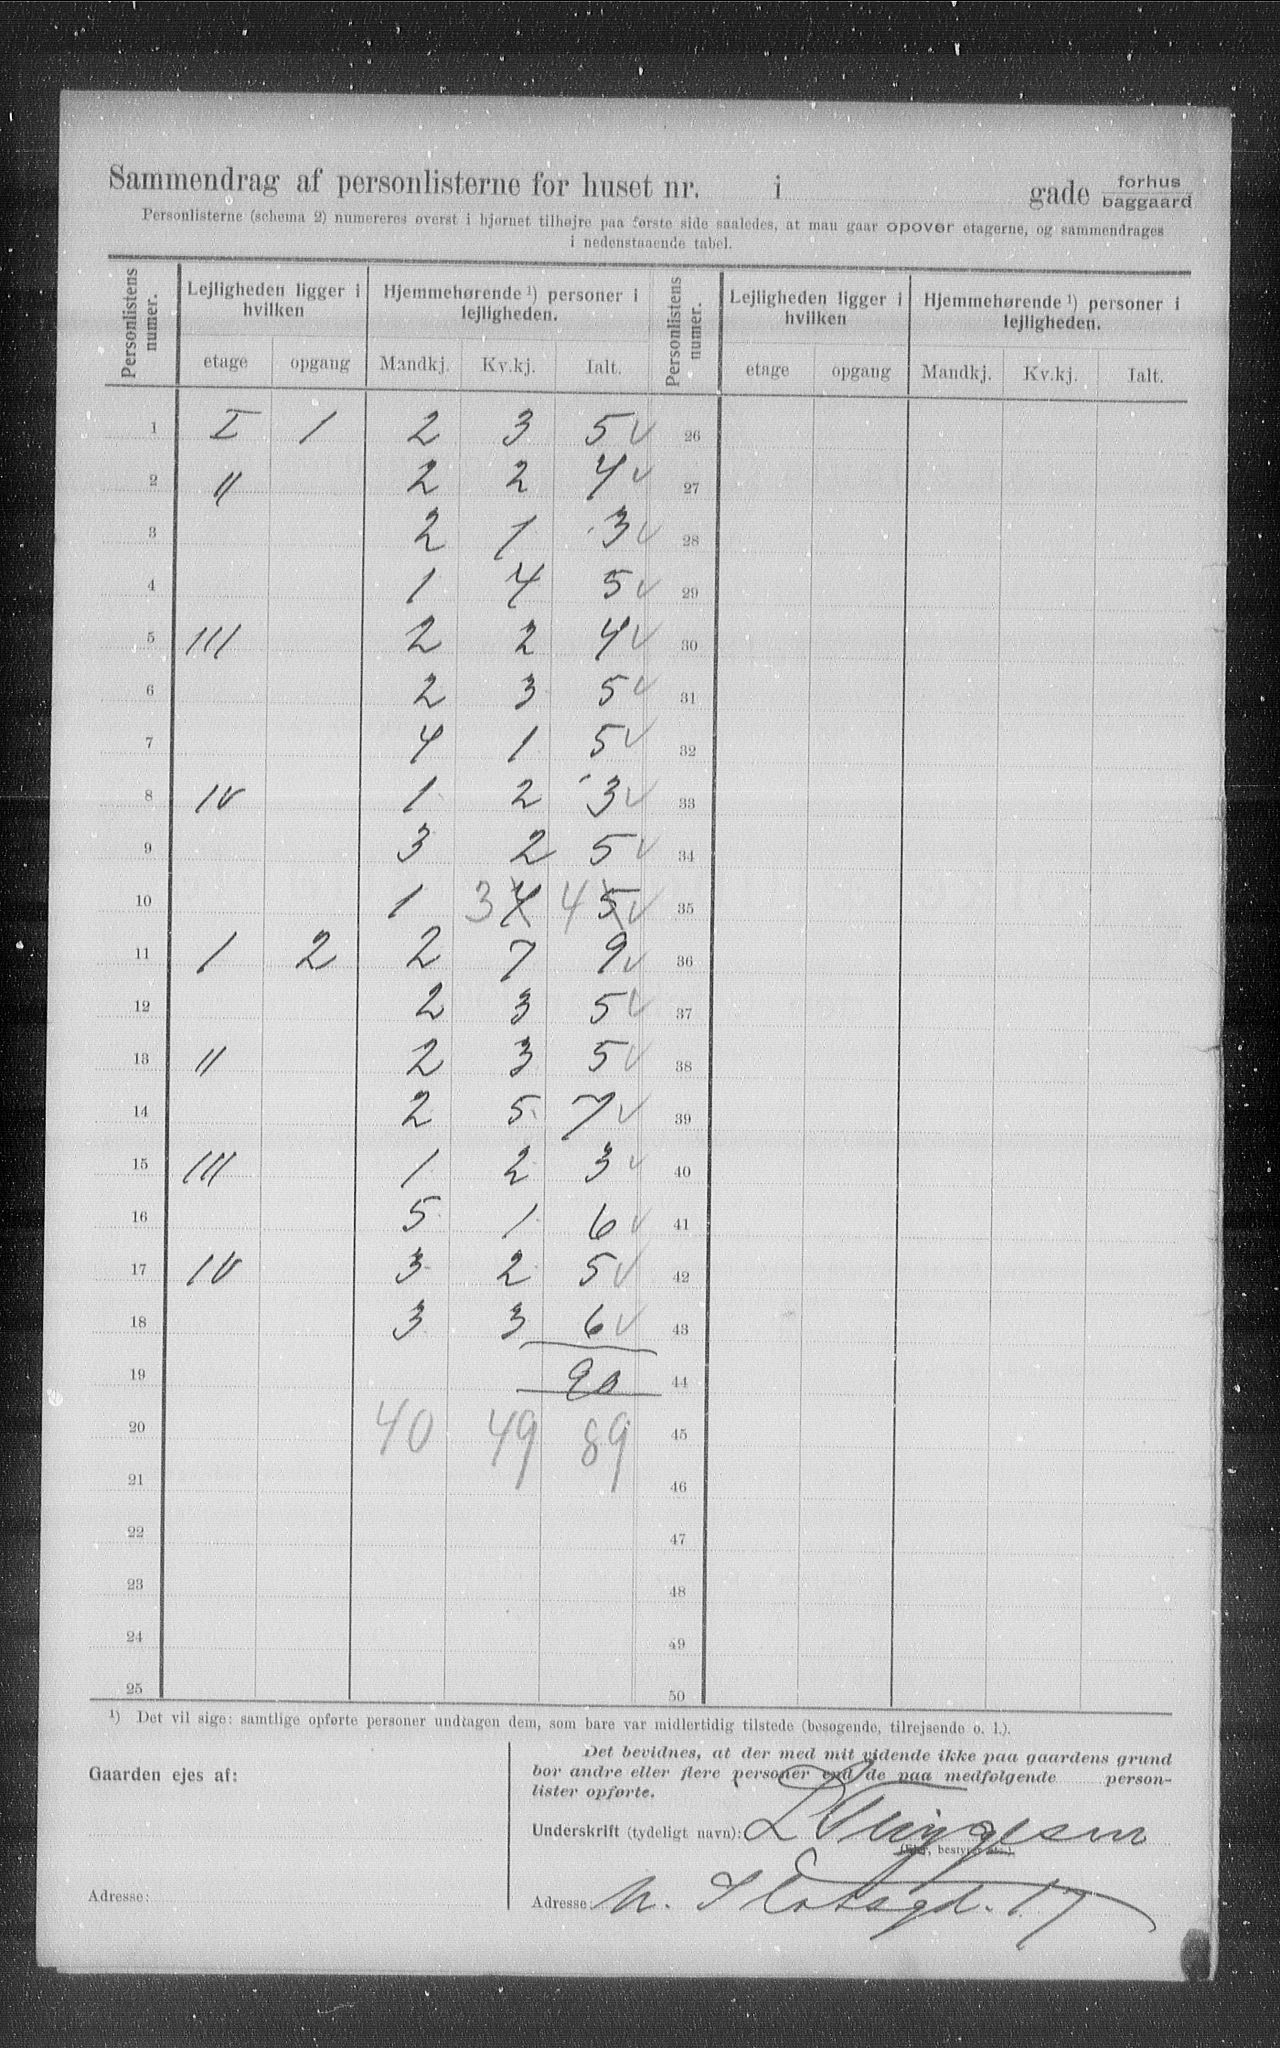 Sammendrag af personlisterne for huset nr. i gade forhus baggaard
Personlisterne (schema 2) numereres øverst i hjørnet tilhøjre paa første side saaledes, at man gaar opover etagerne, og sammendrages
i nedenstaaende tabel.
Personlistens numer. Lejligheden ligger i hvilken Hjemmehørende ¹) personer i lejligheden. Personlistens numer. Lejligheden ligger i hvilken Hjemmehørende ¹) personer i lejligheden.
etage opgang Mandkj. Kv.kj. Ialt. etage opgang Mandkj. Kv.kj. Ialt.
1 I 1 2 3 5 ✓ 26
2 II 2 2 4 ✓ 27
3 2 1 3 ✓ 28
4 1 4 5 ✓ 29
5 III 2 2 4 ✓ 30
6 2 3 5 ✓ 31
7 4 1 5 ✓ 32
8 IV 1 2 3 ✓ 33
9 3 2 5 ✓ 34
10 1 3 4 4 5 ✓ 35
11 1 2 2 7 9 ✓ 36
12 2 3 5 ✓ 37
13 II 2 3 5 ✓ 38
14 2 5 7 ✓ 39
15 III 1 2 3 ✓ 40
16 5 1 6 ✓ 41
17 IV 3 2 5 ✓ 42
18 3 3 6 ✓ 43
19 90 44
20 40 49 89 45
21 46
22 47
23 48
24 49
25 50
¹) Det vil sige: samtlige opførte personer undtagen dem, som bare var midlertidig tilstede (besøgende, tilrejsende o. l.).
Gaarden ejes af:
Adresse:
Det bevidnes, at der med mit vidende ikke paa gaardens grund
bor andre eller flere personer end de paa medfølgende person-
lister opførte.
Underskrift (tydeligt navn):
(Eier, bestyrer etc.)
Adresse: N. Slotsgd. 17